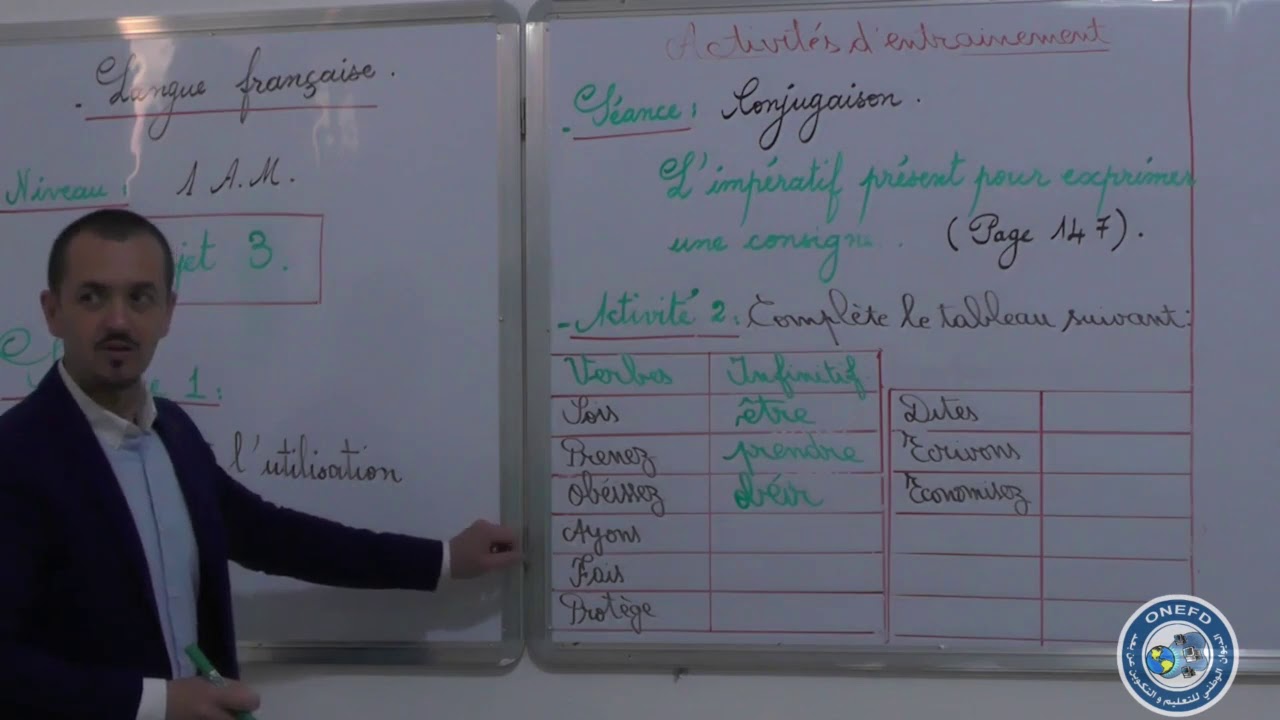 - Langue française.
Niveau : 1 A.M.
jet 3.
e 1 :
l'utilisation
Activités d'entrainement
- Séance : Conjugaison.
L'impératif présent pour exprimer
une consigne. (Page 147).
- Activité 2 : Complète le tableau suivant :
Verbes Infinitif
Sois être
Prenez prendre
Obéissez obéir
Ayons
Fais
Protège
Dites
Ecrivons
Economisez
ONEFD